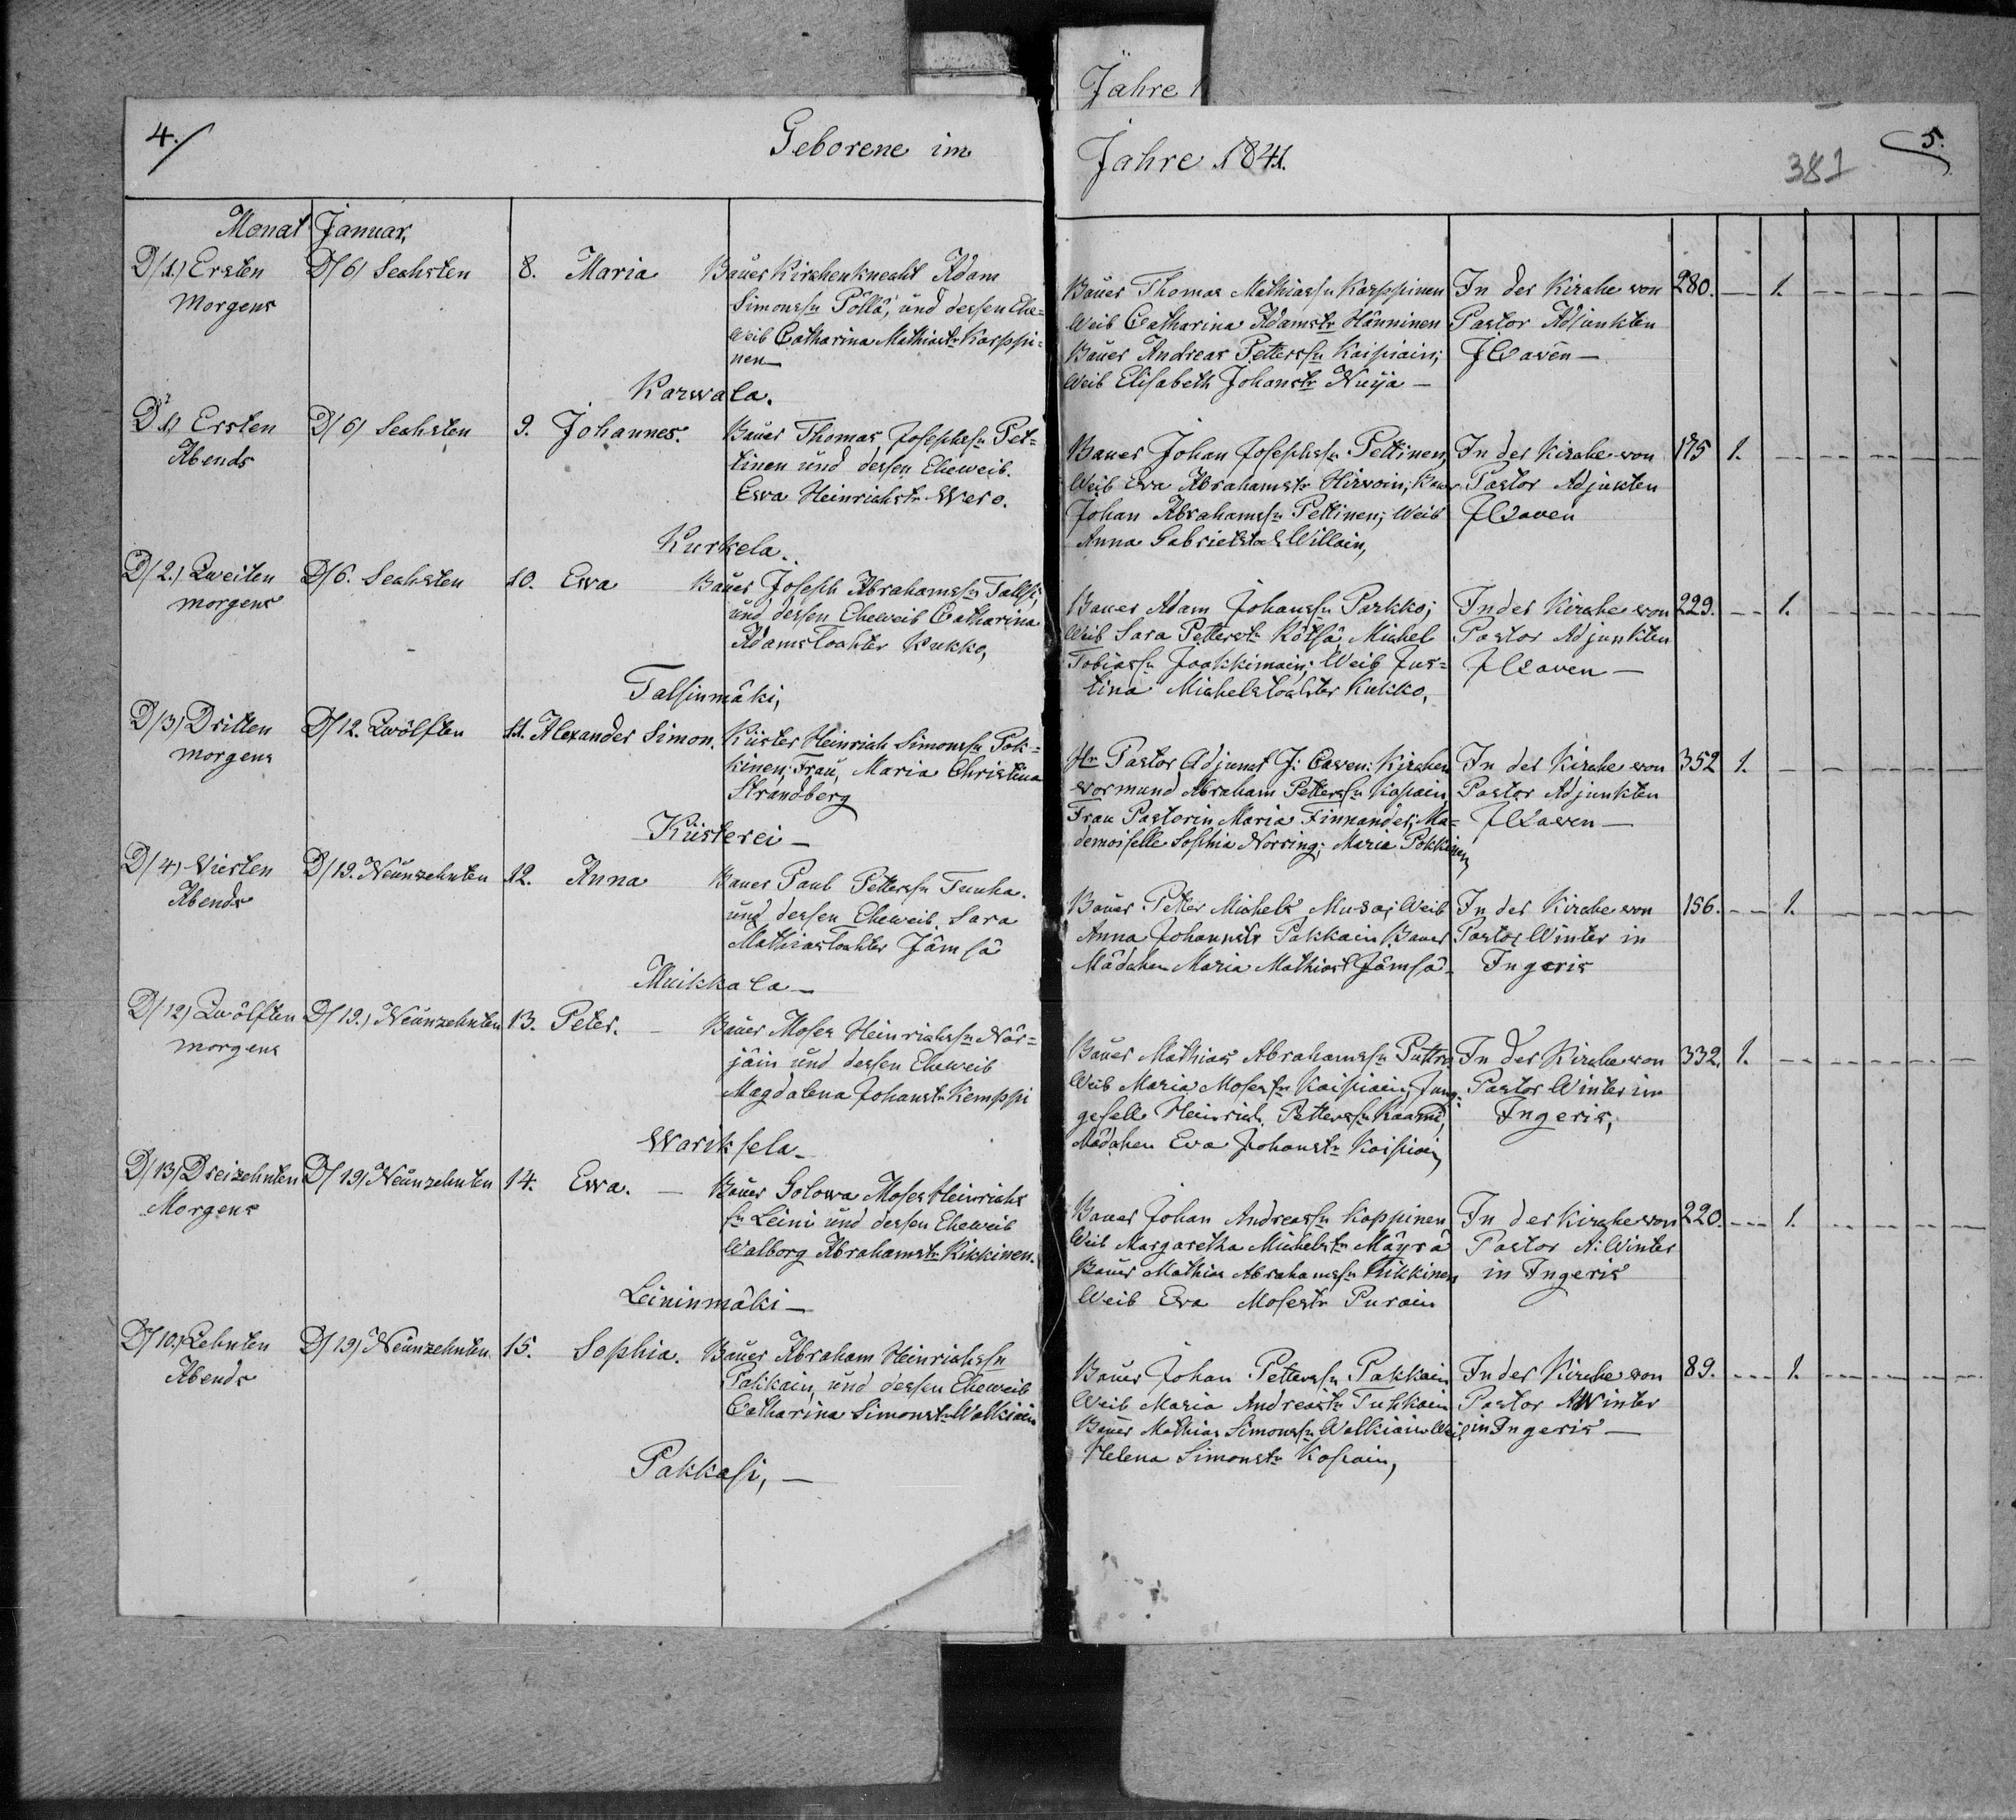 4.
Geborene im
Monat Januar,
D/1.) Ersten D/6) Sechsten 8. Maria Bauer Kirchenknecht Adam
Morgens Simonssn Pöllä, und dessen Ehe=
weib Catharina Mathiastr Karppi=
nen
Karwala.
D 1) Ersten D/6) Sechsten 9. Johannes. Bauer Thomas Josephssn Pet=
Abends tinen und dessen Eheweib.
Ewa Heinrichstr Wero.
Kurkela.
D/2.) Zweiten D/6. Sechsten 10. Ewa Bauer Joseph Abrahamssn Talsi,
morgens und dessen Eheweib Catharina
Adamstochter Kukko,
Talsinmäki,
D/3) Dritten D/12. Zwölften 11. Alexander Simon. Küster Heinrich Simonssn Pok=
morgens kinen; Frau, Maria Christina
Strandberg
Küsterei
D/4) Vierten D/19. Neunzehnten 12. Anna Bauer Paul Petterssn Tuuha.
Abends und dessen Eheweib Sara
Mathiastochter Jämsä
Muikkala
D/12) Zwölften D/19.) Neunzehnten 13. Peter. Bauer Moses Heinrichssn När=
morgens jäin und dessen Eheweib
Magdalena Johanstr Kemppi
Wariksela
D/13) Dreizehnten D/19) Neunzehnten 14. Ewa. Bauer Golowa Moses Heinrichs
Morgens sn Leini und dessen Eheweib
Walborg Abrahamstr Kikkinen.
Leininmäki
D/10.) Zehnten D/19) Neunzehnten 15. Sophia. Bauer Abraham Heinrichssn
Abends Pakkain, und dessen Eheweib
Catharina Simonstr Walkiain
Pakkasi,
Jahre 1
Jahre 1841.
381
5.
Bauer Thomas Mathiassn Karppinen In der Kirche von 280. 1.
Weib Catharina Adamstr Hänninen Pastor Adjunkten
Bauer Andreas Petterssn Kaipiain; J Caven
Weib Elisabeth Johanstr Nuija
Bauer Johan Josephssn Pettinen, In der Kirche von 175 1.
Weib Eva Abrahamstr Hirvoin; Bauer Pastor Adjukten
Johan Abrahamssn Pettinen; Weib J Caven
Anna Gabrielstr Willain,
Bauer Adam Johanssn Parkko; In der Kirche von 229. 1.
Weib Sara Petterstr Kötsä Michel Pastor Adjunkten
Tobiassn Joakkimain; Weib Jus= J Caven
tina Michelstochter Kukko,
Hr Pastor Adjunct J: Caven: Kirchen In der Kirche von 352 1.
vormund Abraham Petterssn Kopain, Pastor Adjunkten
Frau Pastorin Maria Finnander; Ma= J Caven
demoiselle Sophia Norring; Maria Pokkinen
Bauer Petter Michels Musa; Weib In der Kirche von 156. 1.
Anna Johannstr Pakkain Bauer Pastor Winter in
Mädchen Maria Mathiast Jämsä Ingeris
Bauer Mathias Abrahamssn Puttro, In der Kirche von 332. 1.
Weib Maria Mosestr Kaipiain; Jung= Pastor Winter in
gesell Heinrich Petterssn Ingeris,
Mädchen Eva Johanstr Kaipiain
Bauer Johan Andreassn Koppinen In der Kirche von 220. 1.
Weib Margaretha Michelstr Mäyrä Pastor A: Winter
Bauer Mathias Abrahamssn Kikkinen in Ingeris
Weib Eva Mosestr Purain
Bauer Johan Petterssn Pakkain In der Kirche von 89. 1.
Weib Maria Andreastr Tuhkain Pastor A Winter
Bauer Mathias Simonssn Walkiain Weib in Ingeris
Helena Simonstr Kopain,